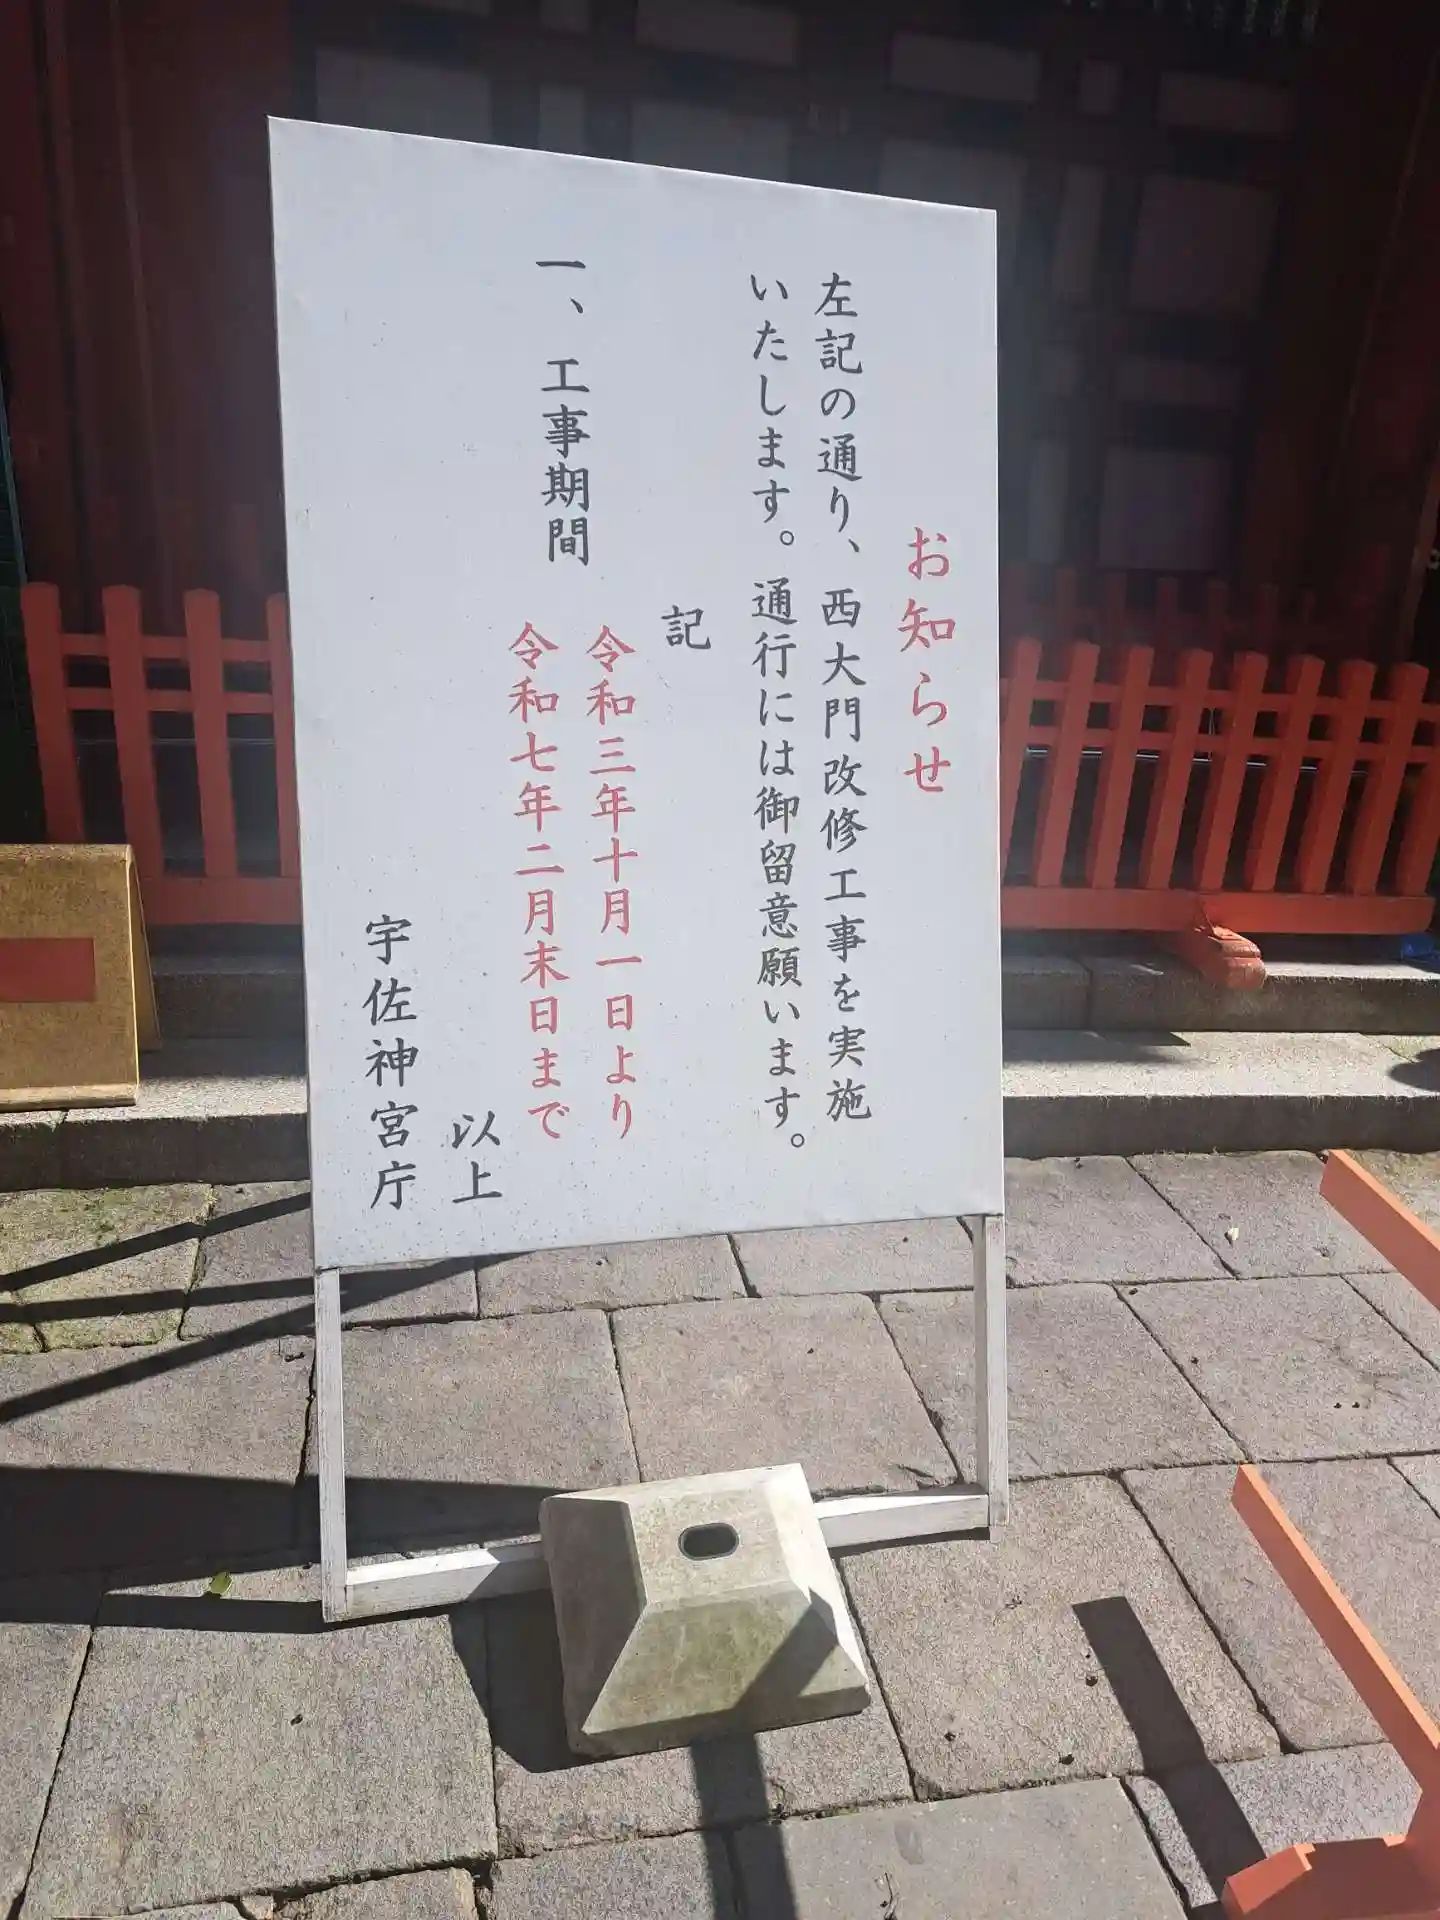 お知らせ
左記の通り、西大門改修工事を実施
いたします。通行には御留意願います。
記
一、工事期間
令和三年十月一日より
令和七年二月末日まで
以上
宇佐神宮庁